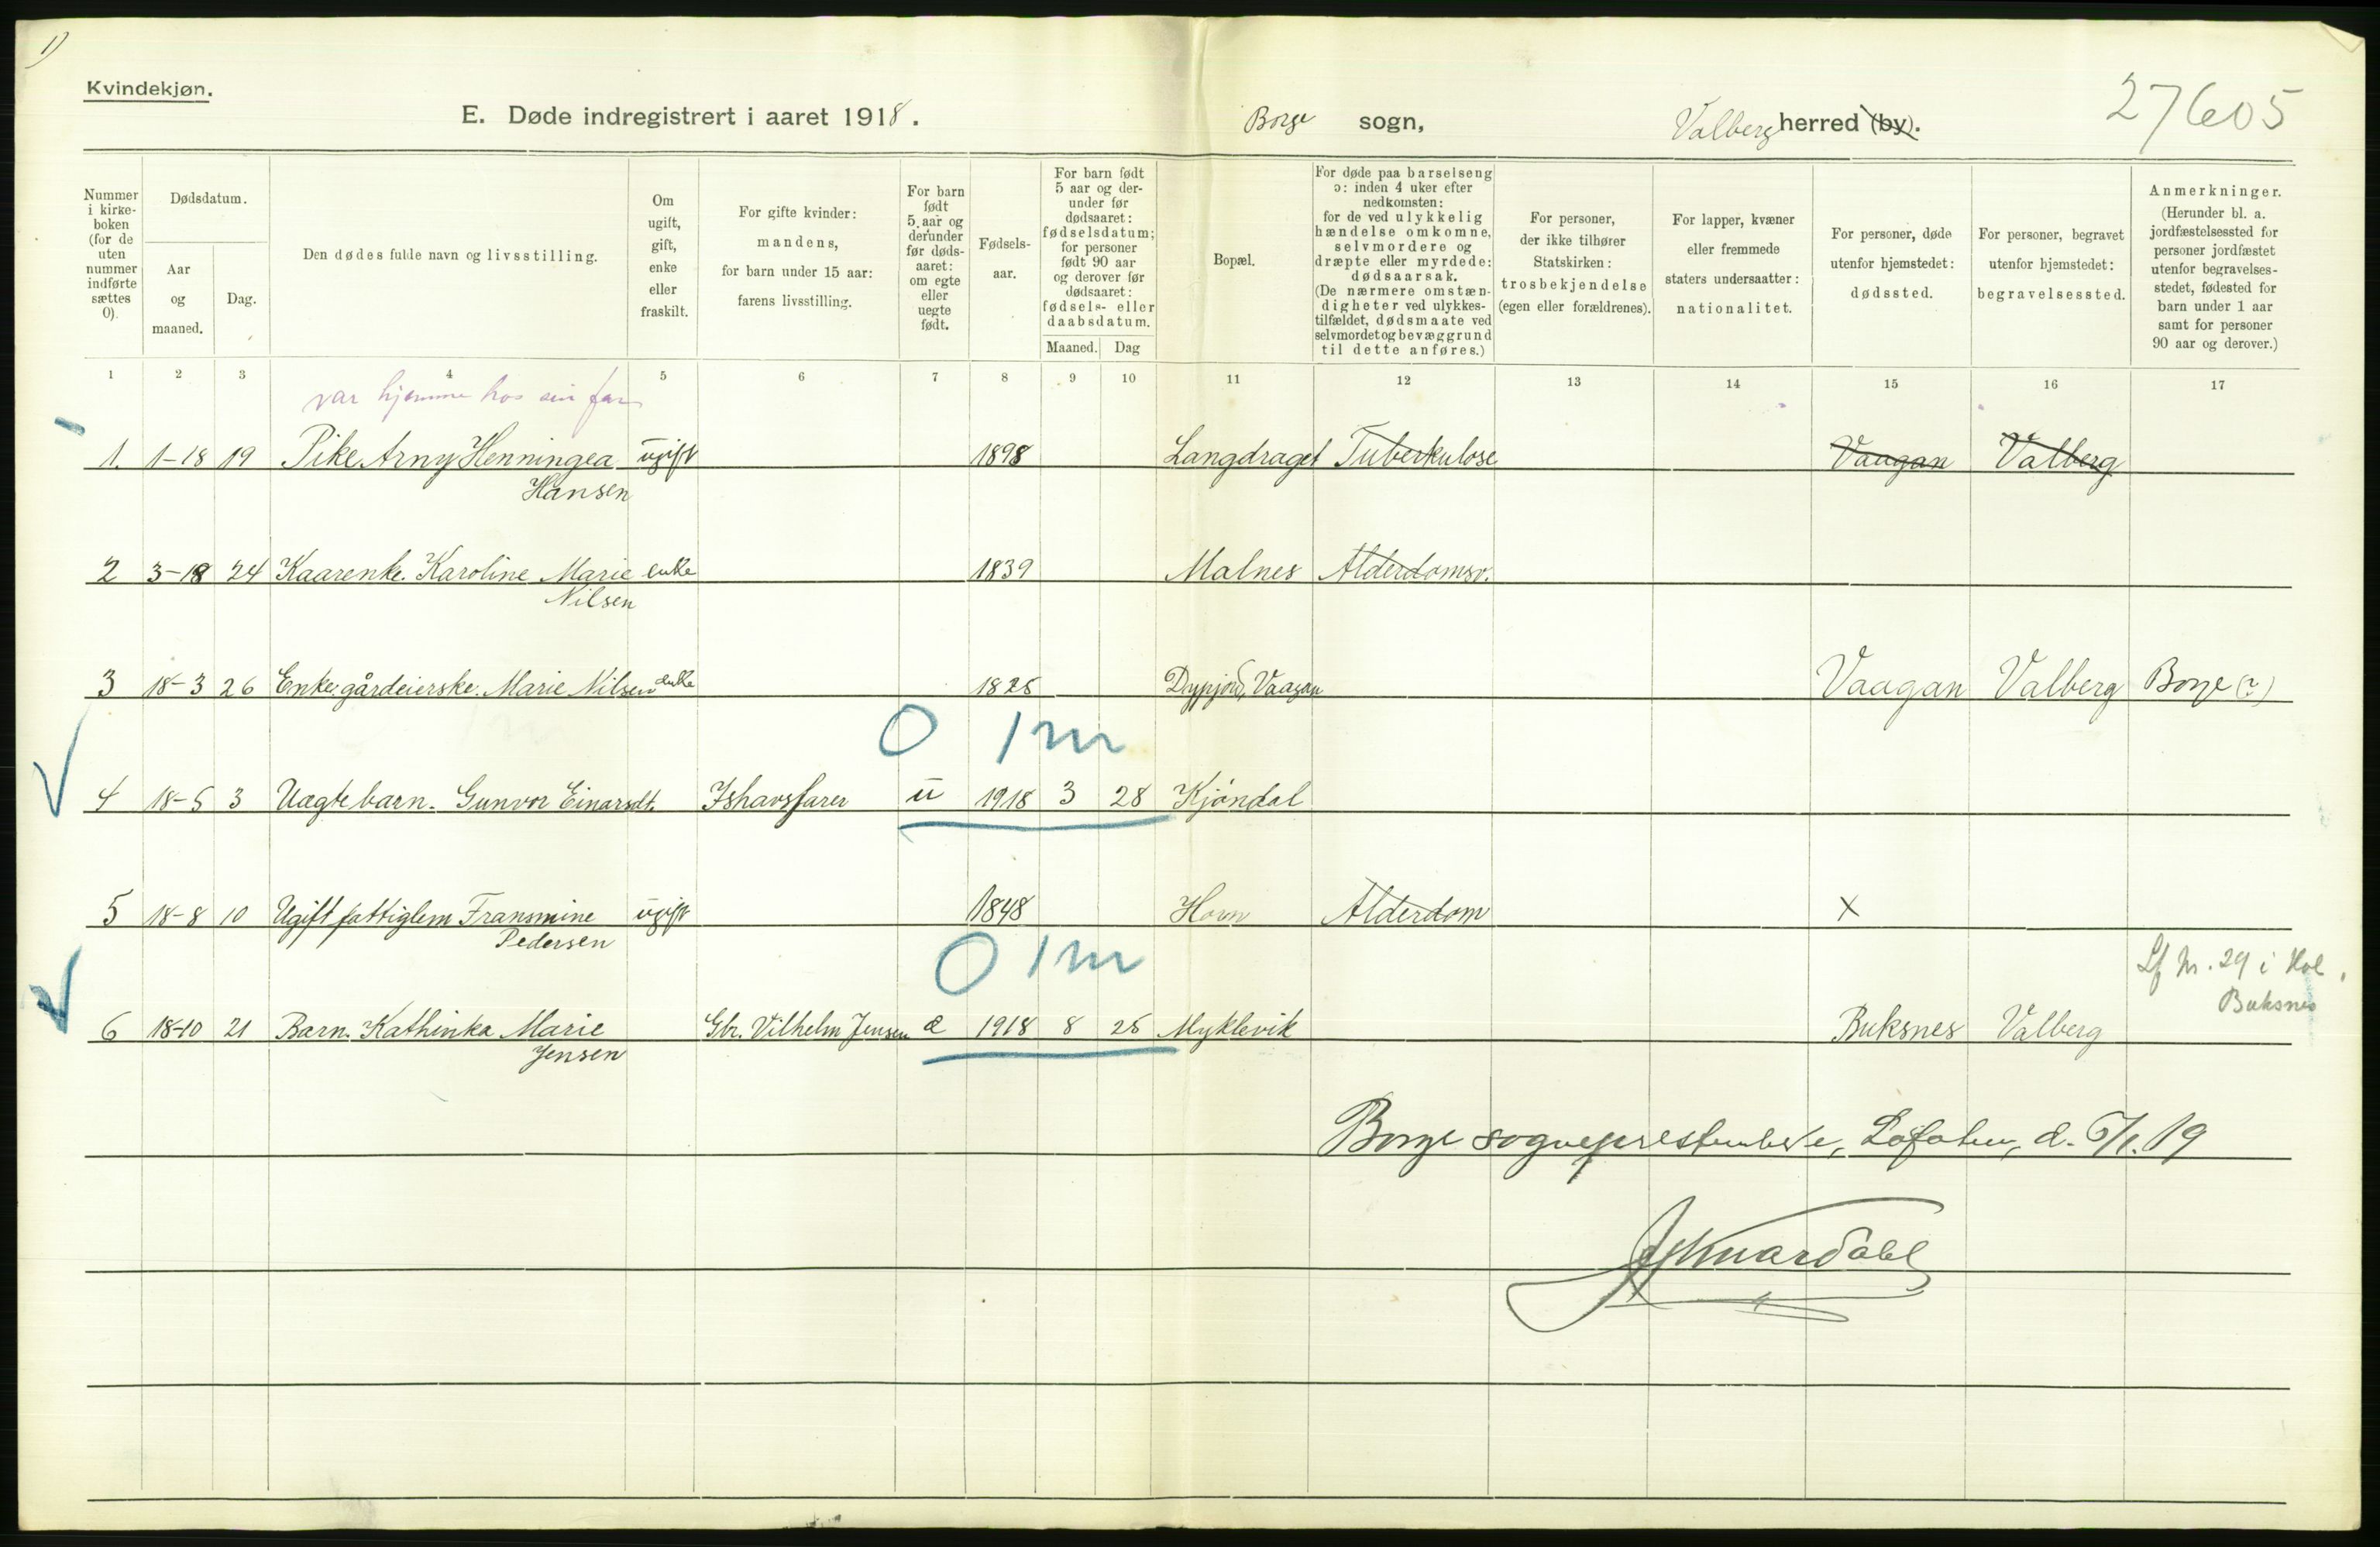 1)
Kvindekjøn.
E. Døde indregistrert i aaret 1918. Borge sogn, Valberg herred (by). 27605
Nummer i kirke-boken (for de uten nummer indførte sættes 0).
Dødsdatum.
Aar og maaned.
Dag.
Den dødes fulde navn og livsstilling.
Om ugift, gift, enke eller fraskilt.
For gifte kvinder: mandens, for barn under 15 aar: farens livsstilling.
For barn født 5 aar og derunder før døds-aaret: om egte eller uegte født.
Fødsels-aar.
For barn født 5 aar og der-under før dødsaaret: fødselsdatum; for personer født 90 aar og derover før dødsaaret: fødsels- eller daabsdatum.
Maaned. Dag
Bopæl.
For døde paa barselseng ɔ: inden 4 uker efter nedkomsten: for de ved ulykkelig hændelse omkomne, selvmordere og dræpte eller myrdede: dødsaarsak. (De nærmere omstæn-digheter ved ulykkes-tilfældet, dødsmaate ved selvmordet og bevæggrund til dette anføres.)
For personer, der ikke tilhører Statskirken: trosbekjendelse (egen eller forældrenes).
For lapper, kvæner eller fremmede staters undersaatter: nationalitet.
For personer, døde utenfor hjemstedet: dødssted.
For personer, begravet utenfor hjemstedet: begravelsessted.
Anmerkninger. (Herunder bl. a. jordfæstelsessted for personer jordfæstet utenfor begravelses-stedet, fødested for barn under 1 aar samt for personer 90 aar og derover.)
1 2 3 4 5 6 7 8 9 10 11 12 13 14 15 16 17
var hjemme hos sin far
1. 1-18 19 Pike Arny Henningea ugift 1898 Langdraget Tuberkulose Vaagan Valberg
Hansen
2 3-18 24 Kaarenke. Karoline Marie enke 1839 Malnes Alderdomsv.
Nilsen
3 18-3 26 Enke, gårdeierske. Marie Nilsen enke 1825 Dypfjord, Vaagan Vaagan Valberg Borge (?)
0 1 m
4 18-5 3 Uægte barn. Gunvor Einarsdt. Ishavsfarer u 1918 3 28 Kjöndal
5 18-8 10 Ugift fattiglem Fransmine ugift 1848 Horn Alderdom X
Pedersen
0 1 m
Lf Nr. 29 i Hol,
Buksnes
6 18-10 21 Barn. Kathinka Marie Gbr. Vilhelm Jensen æ 1918 8 25 Myklevik Buksnes Valberg
Jensen
Borge sogneprestembede, Lofoten, d. 6/1. 19